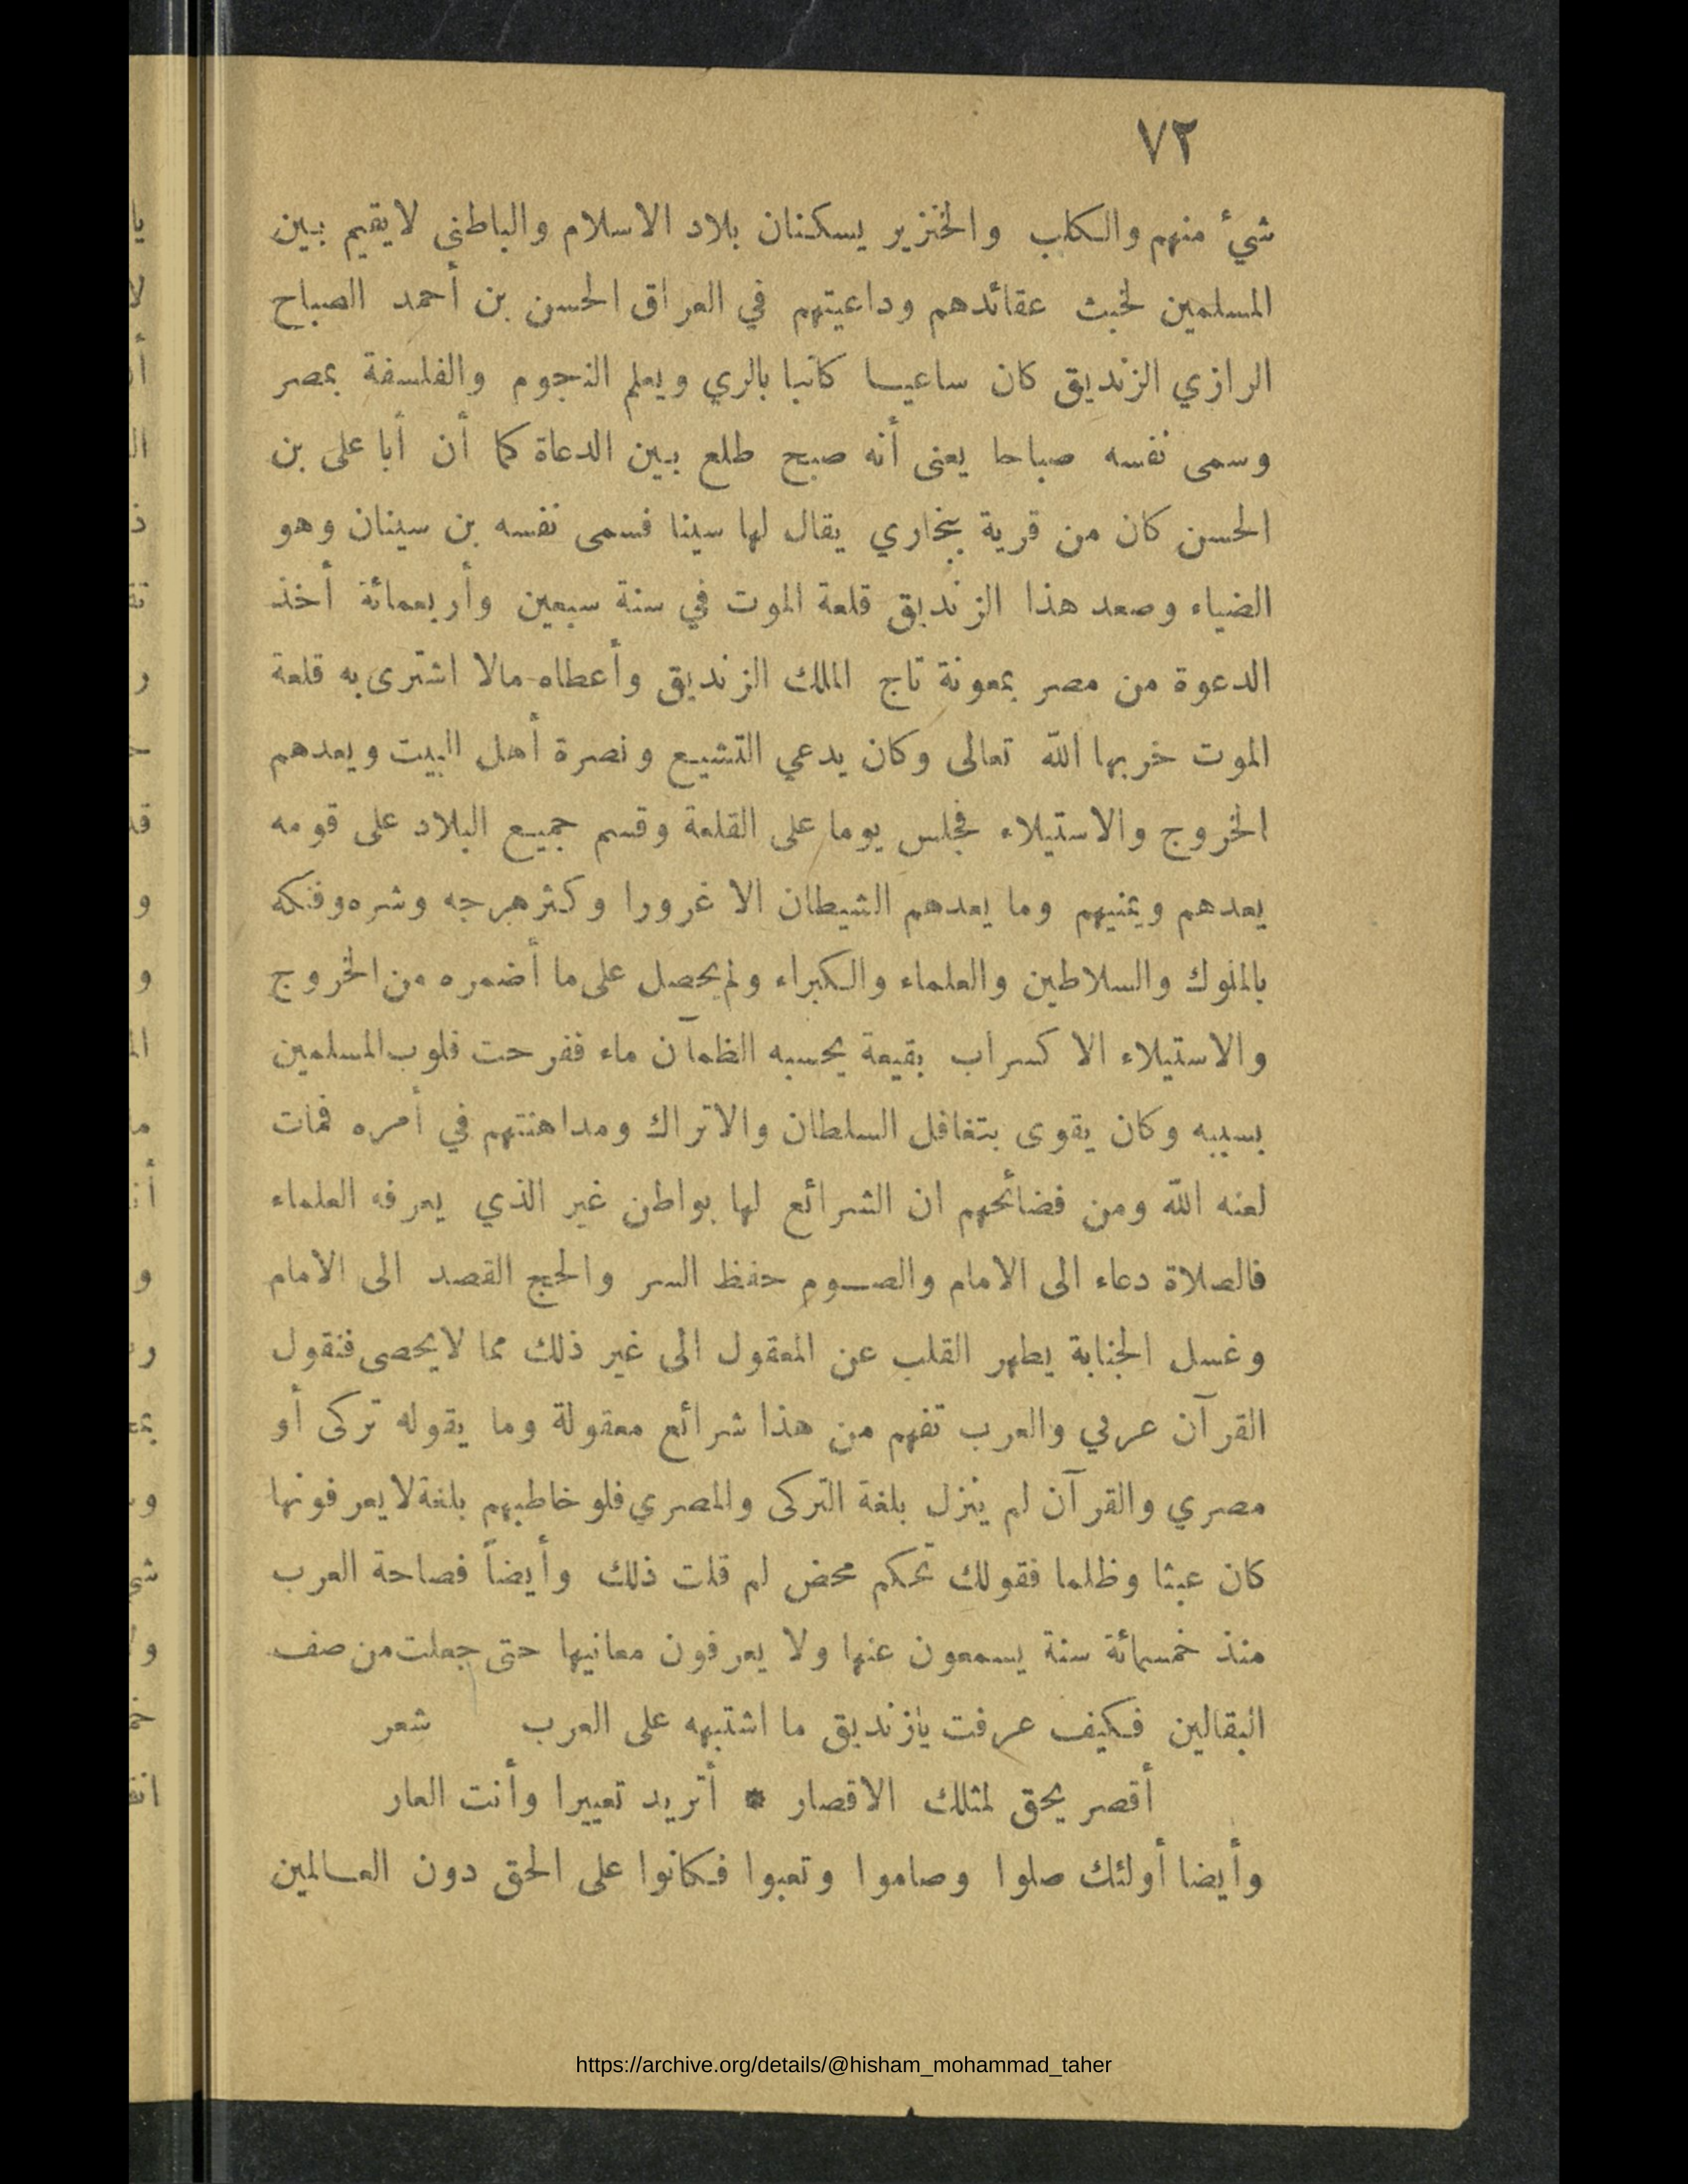 ٧٢
شيء منهم والكلب والخنزير يسكنان بلاد الاسلام والباطنى لايقيم بين
المسلمين لخبث عقائدهم وداعيتهم في العراق الحسن بن أحمد الصباح
الرازي الزنديق كان ساعيا كاتبا بالري ويعلم النجوم والفلسفة بمصر
وسمى نفسه صباحا يعنى أنه صبح طلع بين الدعاة كما أن أبا على بن
الحسن كان من قرية ببخاري يقال لها سينا فسمى نفسه بن سينان وهو
الضياء وصعد هذا الزنديق قلعة الموت في سنة سبعين وأربعمائة أخذ
الدعوة من مصر بمعونة تاج الملك الزنديق وأعطاه مالا اشترى به قلعة
الموت خربها الله تعالى وكان يدعي التشيع ونصرة أهل البيت ويعدهم
الخروج والاستيلاء فجلس يوما على القلعة وقسم جميع البلاد على قومه
يعدهم ويمنيهم وما يعدهم الشيطان الا غرورا وكثر هرجه وشره وفتكه
بالملوك والسلاطين والعلماء والكبراء ولم يحصل على ما أضمره من الخروج
والاستيلاء الا كسراب بقيعة يحسبه الظمآن ماء ففرحت قلوب المسلمين
بسببه وكان يقوى بتغافل السلطان والاتراك ومداهنتهم في أمره فمات
لعنه الله ومن فضائحهم ان الشرائع لها بواطن غير الذي يعرفه العلماء
فالصلاة دعاء الى الامام والصوم حفظ السر والحج القصد الى الامام
وغسل الجنابة يطهر القلب عن المعقول الى غير ذلك مما لايحصى فنقول
القرآن عربي والعرب تفهم من هذا شرائع معقولة وما يقوله تركى أو
مصري والقرآن لم ينزل بلغة التركى والمصري فلو خاطبهم بلغة لايعرفونها
كان عبثا وظلما فقولك تحكم محض لم قلت ذلك وأيضاً فصاحة العرب
منذ خمسمائة سنة يسمعون عنها ولا يعرفون معانيها حتى جعلت من صف
البقالين فكيف عرفت يازنديق ما اشتبه على العرب شعر
أقصر يحق لمثلك الاقصار * أتريد تعييرا وأنت العار
وأيضا أولئك صلوا وصاموا وتعبوا فكانوا على الحق دون العالمين
https://archive.org/details/@hisham_mohammad_taher